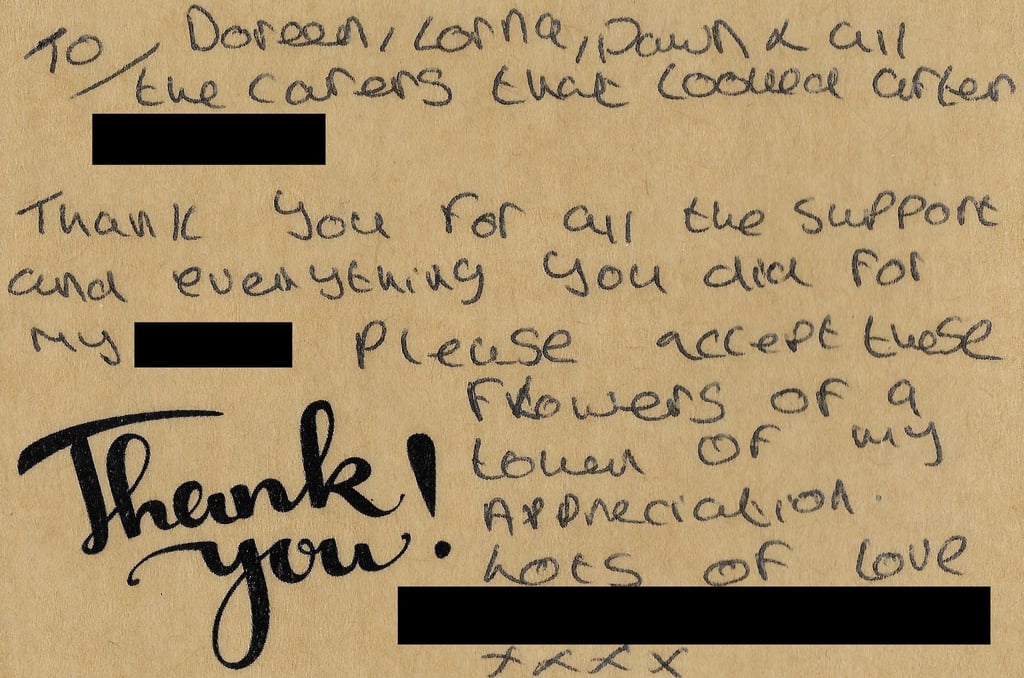 TO / Doreen, Lorna, Dawn & all
the carers that looked after
Thank you for all the support
and everything you did for
my Please accept these
Flowers of a
token of my
Appreciation.
Lots of love
xxxx
Thank
you!